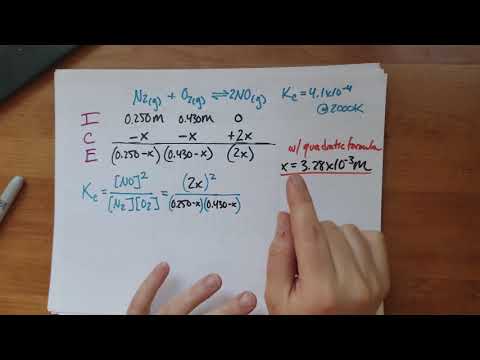 N₂(g) + O₂(g) ⇌ 2NO(g)
Kc = 4.1x10⁻⁴
@2000K
I 0.250m 0.430m 0
C -x -x +2x
E (0.250-x) (0.430-x) (2x)
w/ quadratic formula
x = 3.28x10⁻³m
Kc = [NO]² / [N₂][O₂] = (2x)² / (0.250-x)(0.430-x)